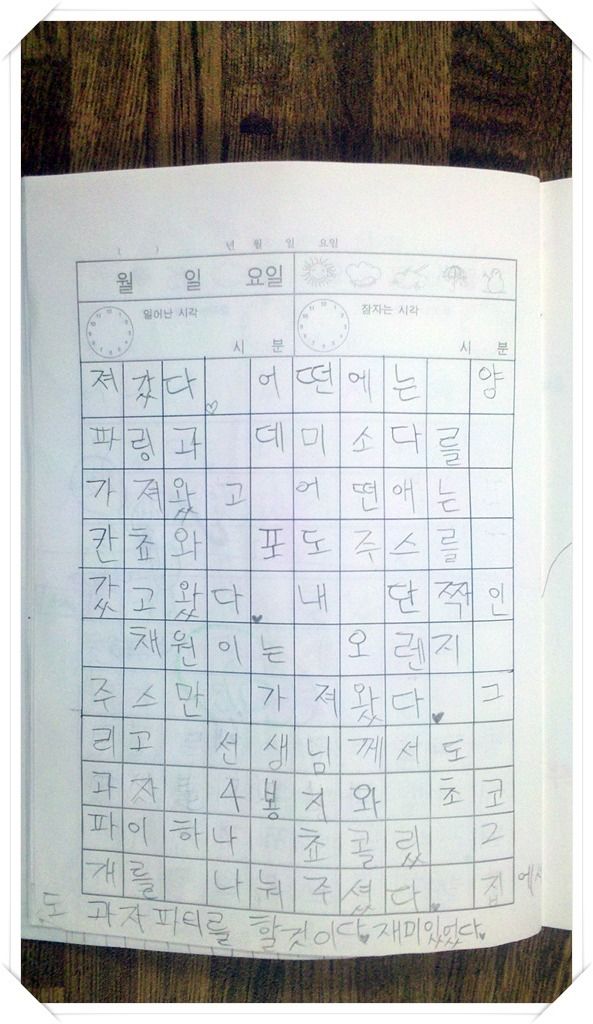 ( ) 년 월 일 요일
월 일 요일
일어난 시각 잠자는 시각
시 분 시 분
져갔다♡ 어떤에는 양
파링과 데미소다를
가져왔고 어떤애는
칸쵸와 포도주스를
갔고왔다♥ 내 단짝인
채원이는 오렌지
주스만 가져왔다♥ 그
리고 선생님께서도
과자 4봉지와 초코
파이하나 쵸콜릿 2
개를 나눠주셨다♥ 집에서
도 과자파티를 할것이다♥ 재미있었다♥